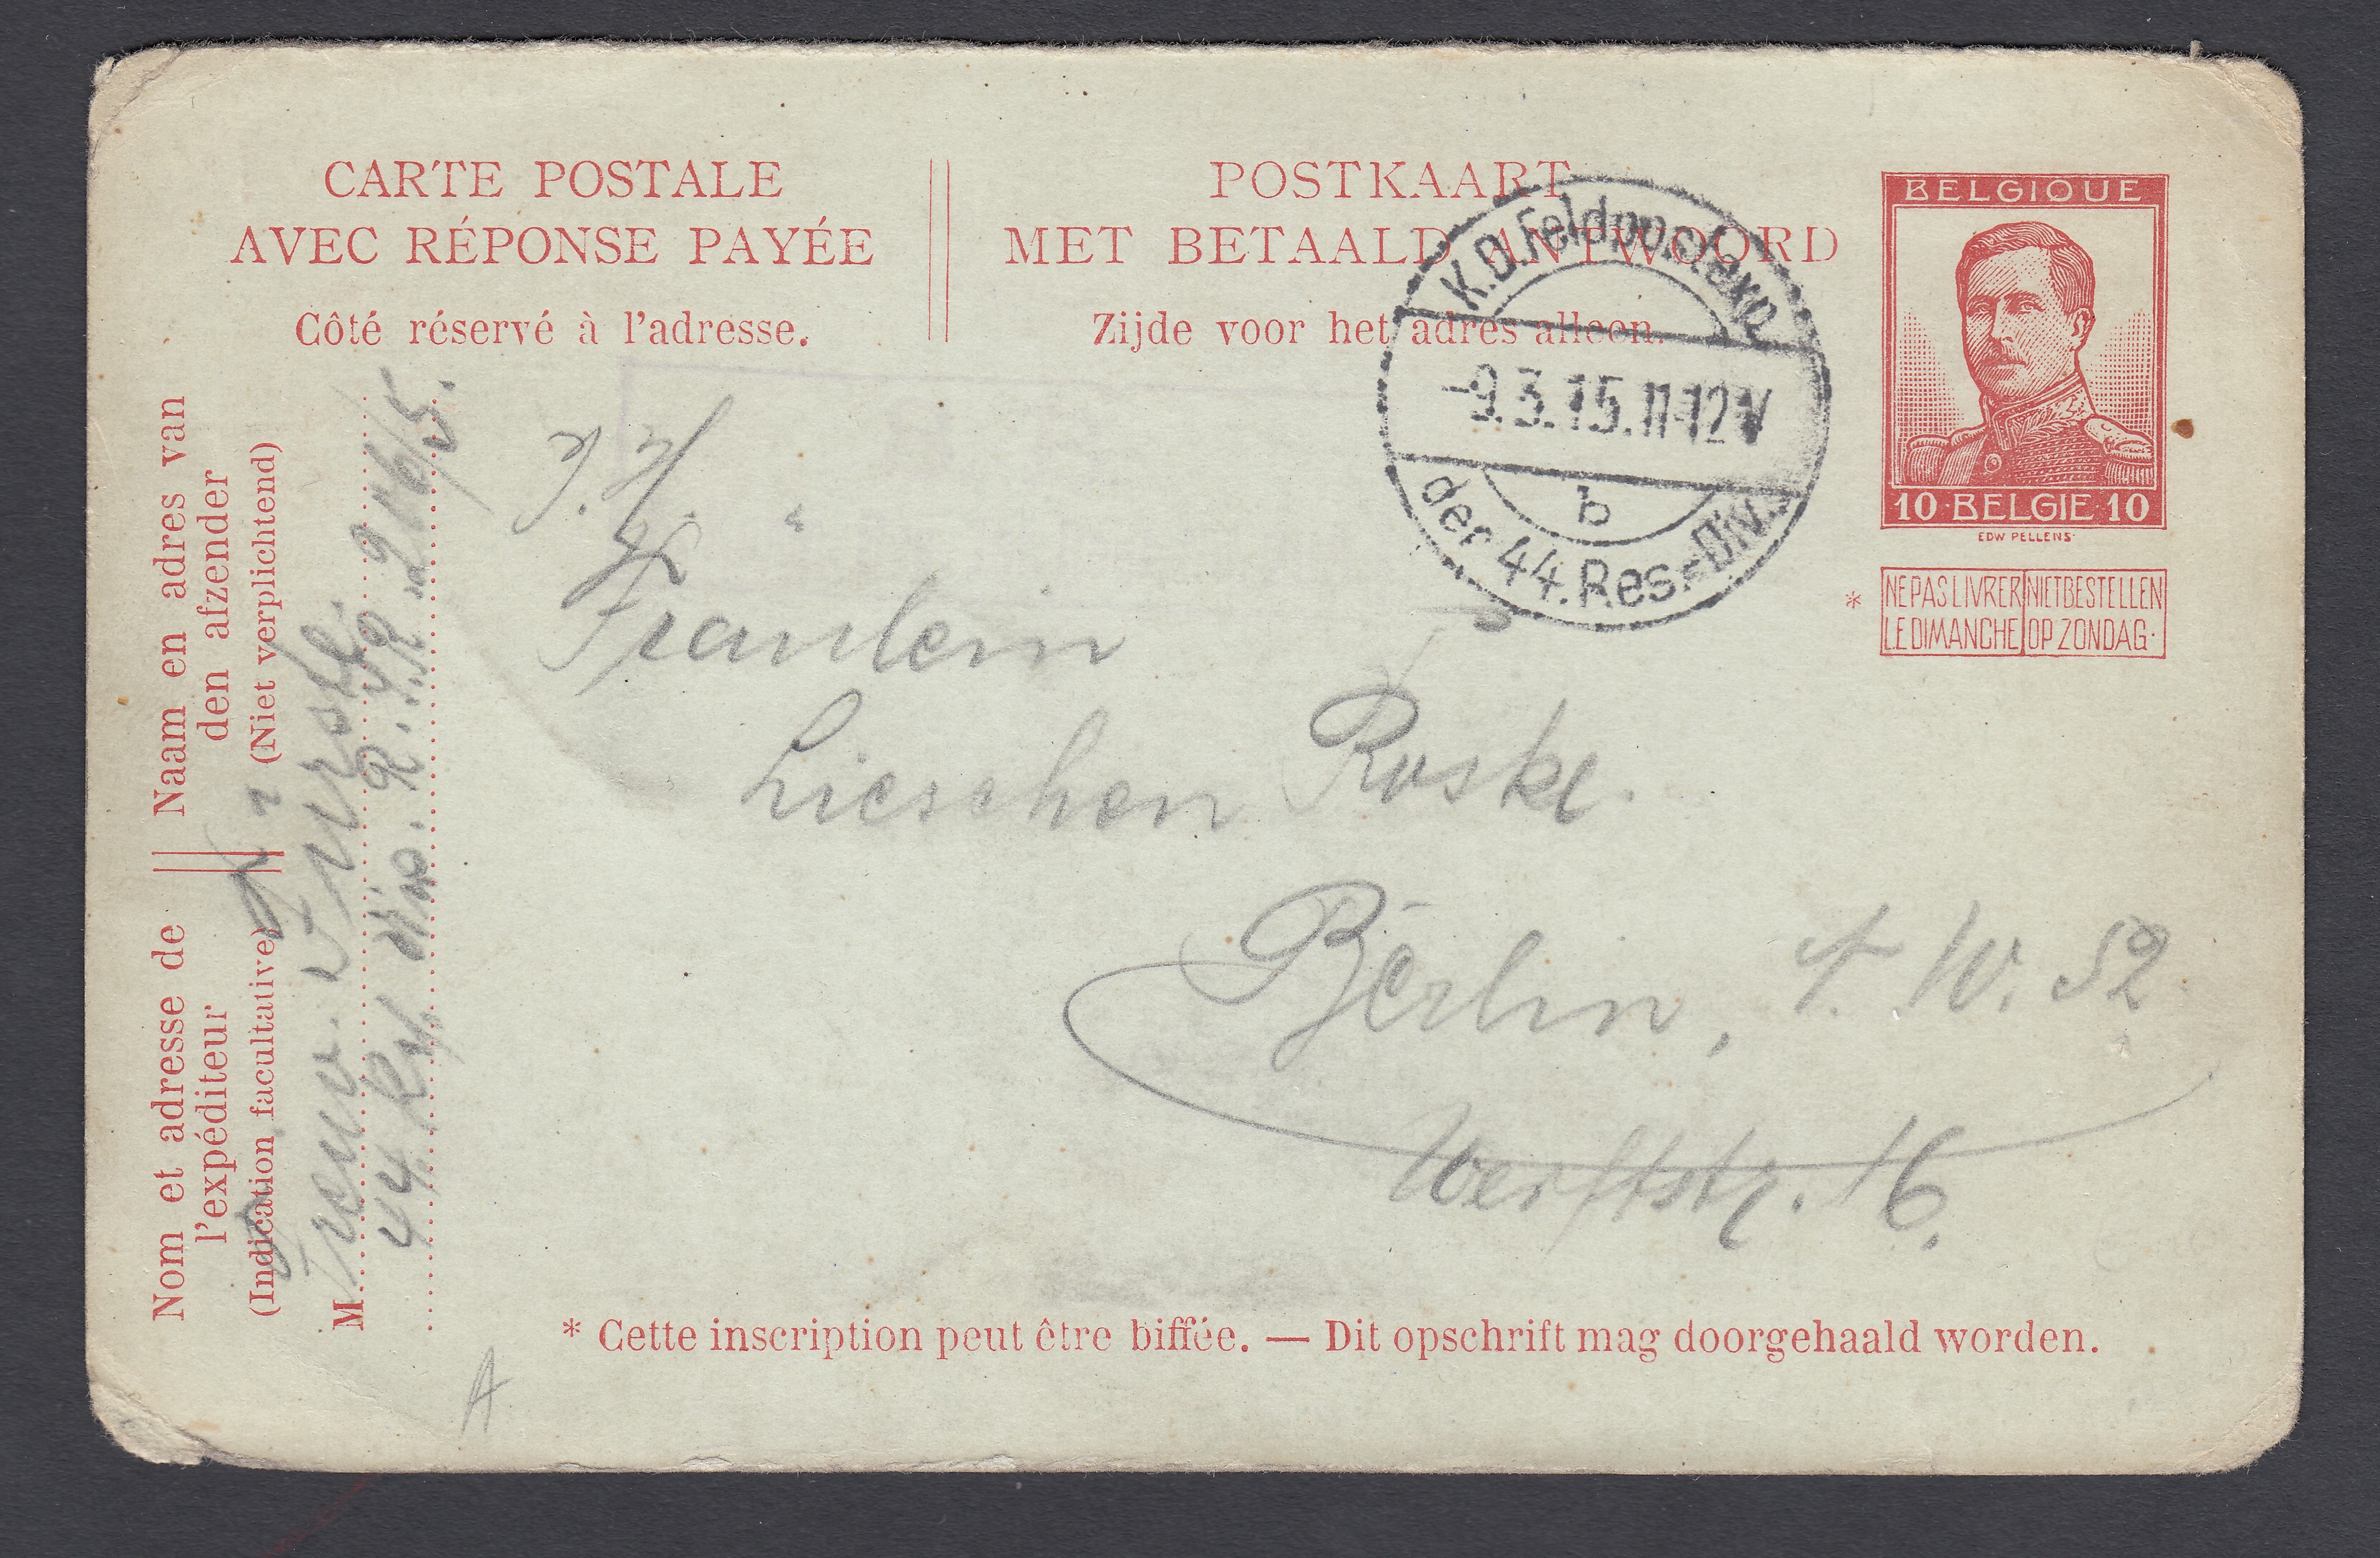 CARTE POSTALE
AVEC RÉPONSE PAYÉE
Côté réservé à l'adresse.
POSTKAART
MET BETAALD ANTWOORD
Zijde voor het adres alleen.
BELGIQUE
10 BELGIE 10
EDW PELLENS
* NE PAS LIVRER LE DIMANCHE
NIET BESTELLEN OP ZONDAG.
K.D.Feldpostexp.
-9.3.15.11-12V
b
der 44.Res.-Div.
Naam en adres van
den afzender
(Niet verplichtend)
Nom et adresse de
l'expéditeur
(Indication facultative)
M
44 Res. Div. R. I. R. 206/5.
Fräulein
Lieschen Roske.
Berlin, N. W. 52
Werftstr. 16.
* Cette inscription peut être biffée. — Dit opschrift mag doorgehaald worden.
A